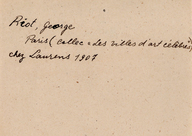 Riat, George
Paris (collec. Les villes d'art célèbres)
chez Laurens 1907